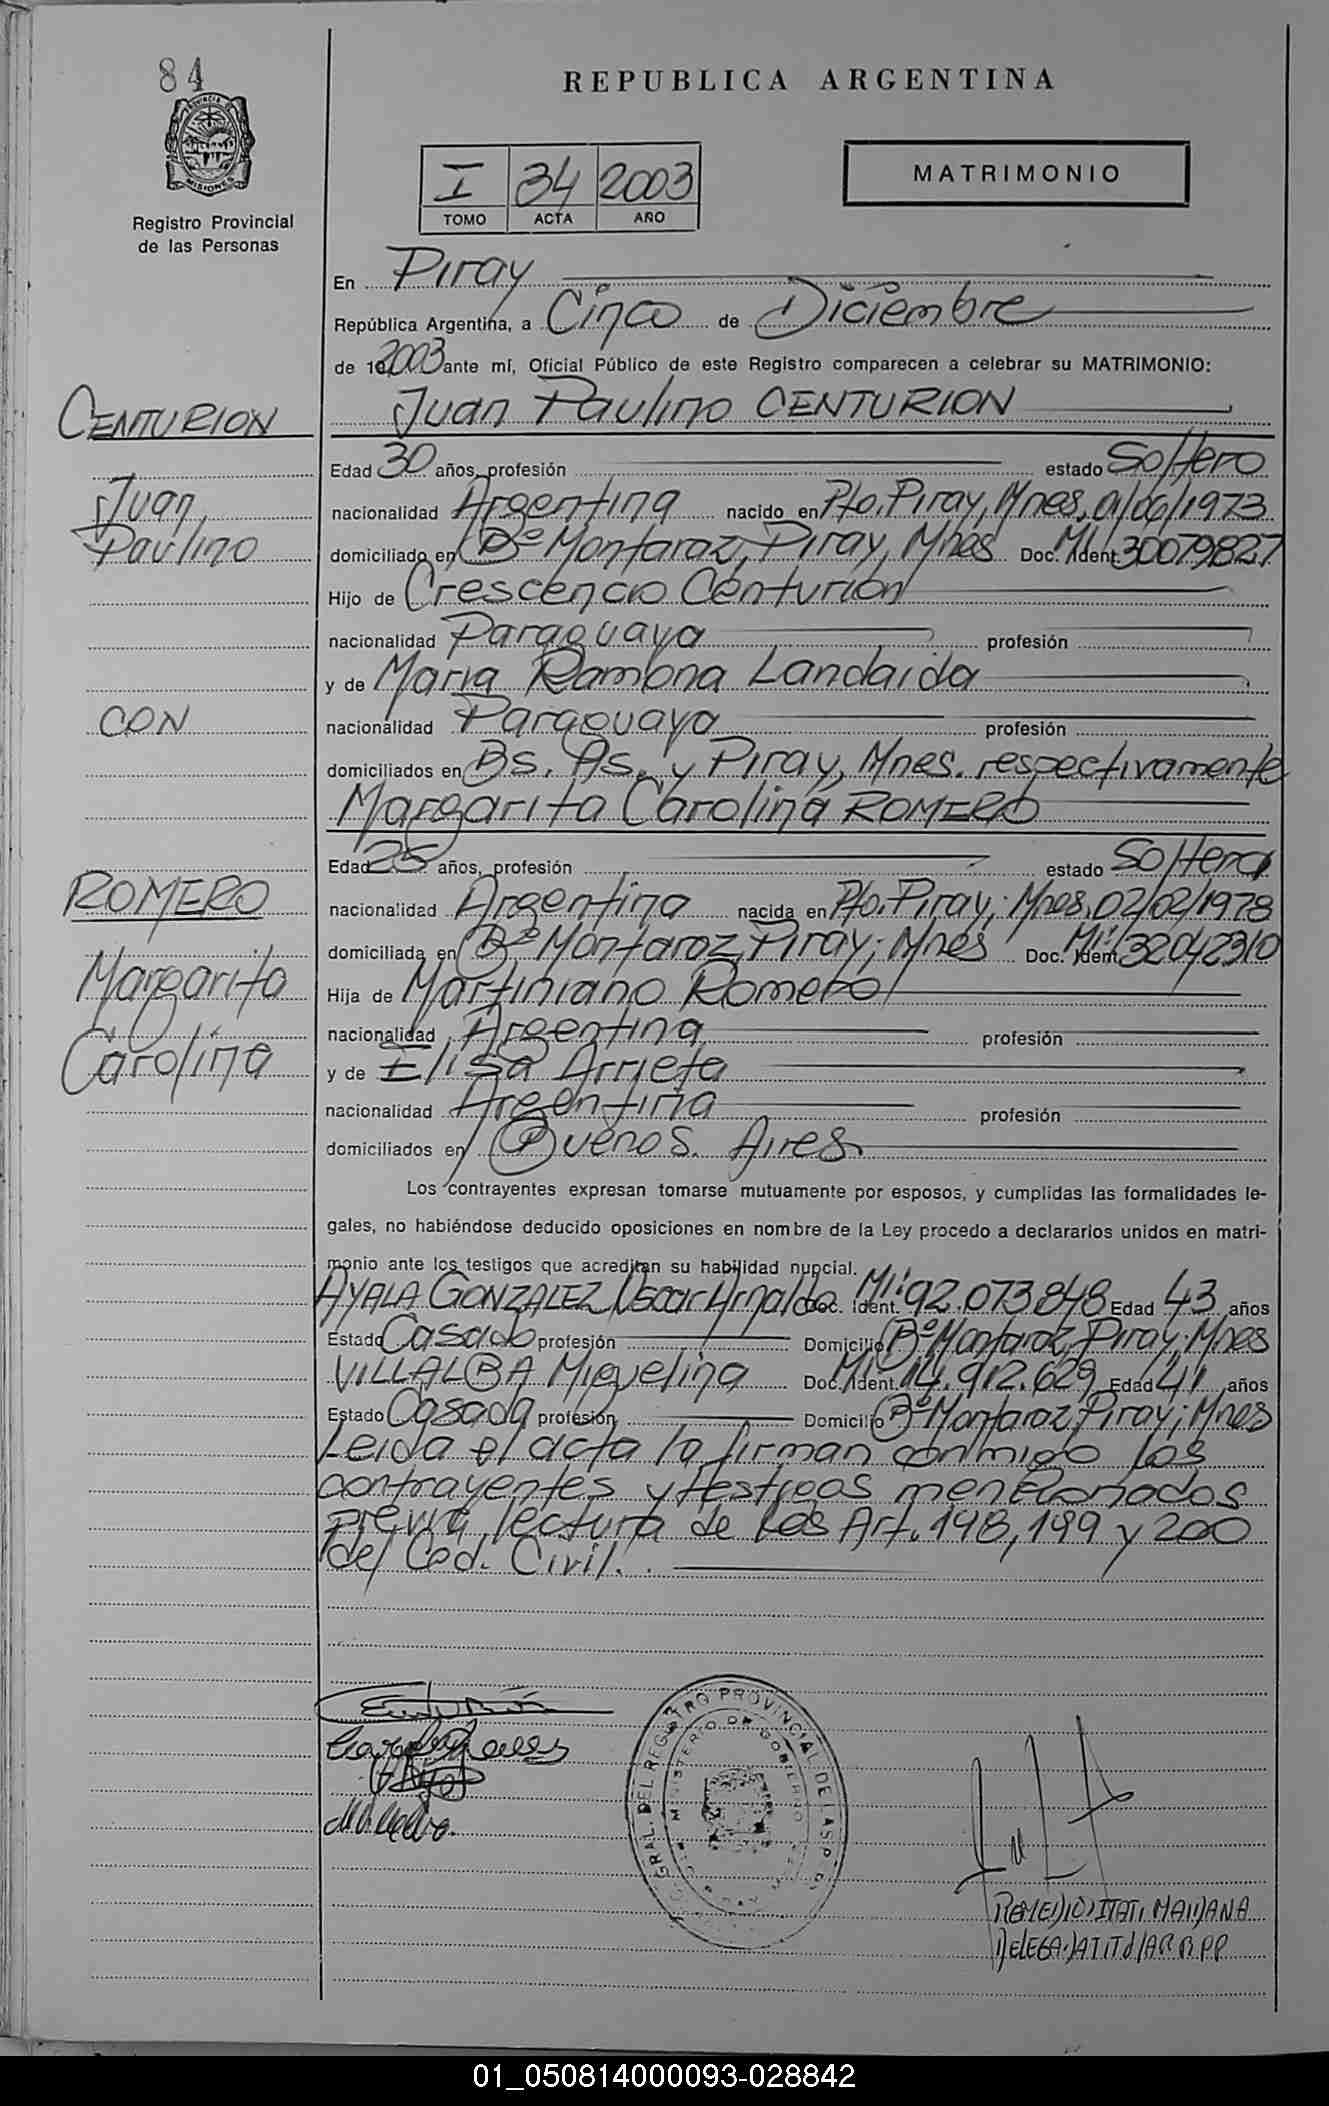 84
PROVINCIA DE
MISIONES
Registro Provincial
de las Personas
REPUBLICA ARGENTINA
I 34 2003
TOMO ACTA AÑO
MATRIMONIO
En Piray
República Argentina, a Cinco de Diciembre
de 2003 ante mí, Oficial Público de este Registro comparecen a celebrar su MATRIMONIO:
CENTURION
Juan
Paulino
CON
ROMERO
Margarita
Carolina
Juan Paulino CENTURION
Edad 30 años, profesión estado Soltero
nacionalidad Argentina nacido en Pto. Piray, Mnes, 01/06/1973
domiciliado en Bº Montaraz, Piray, Mnes Doc. Ident. MI: 30079827
Hijo de Crescencio Centurión
nacionalidad Paraguaya profesión
y de Maria Ramona Landaida
nacionalidad Paraguaya profesión
domiciliados en Bs. As. y Piray, Mnes. respectivamente
Margarita Carolina ROMERO
Edad 25 años, profesión estado Soltera
nacionalidad Argentina nacida en Pto. Piray, Mnes, 02/02/1978
domiciliada en Bº Montaraz, Piray; Mnes Doc. Ident. MI: 32042310
Hija de Martiniano Romero
nacionalidad Argentina profesión
y de Elisa Arrieta
nacionalidad Argentina profesión
domiciliados en Buenos Aires
Los contrayentes expresan tomarse mutuamente por esposos, y cumplidas las formalidades le-
gales, no habiéndose deducido oposiciones en nombre de la Ley procedo a declararlos unidos en matri-
monio ante los testigos que acreditan su habilidad nupcial.
AYALA GONZALEZ Oscar Arnaldo Doc. Ident. MI: 92.073.848 Edad 43 años
Estado Casado profesión Domicilio Bº Montaraz, Piray; Mnes
VILLALBA Miguelina Doc. Ident. MI: 14.912.629 Edad 41 años
Estado Casada profesión Domicilio Bº Montaraz, Piray; Mnes
Leida el acta la firman conmigo los
contrayentes y testigos mencionados
previa lectura de los Art. 198, 199 y 200
del Cod. Civil.
GRAL. DEL REGISTRO PROVINCIAL DE LAS P
MINISTERIO DE GOBIERNO
ITATI MAIDANA
01_050814000093-028842